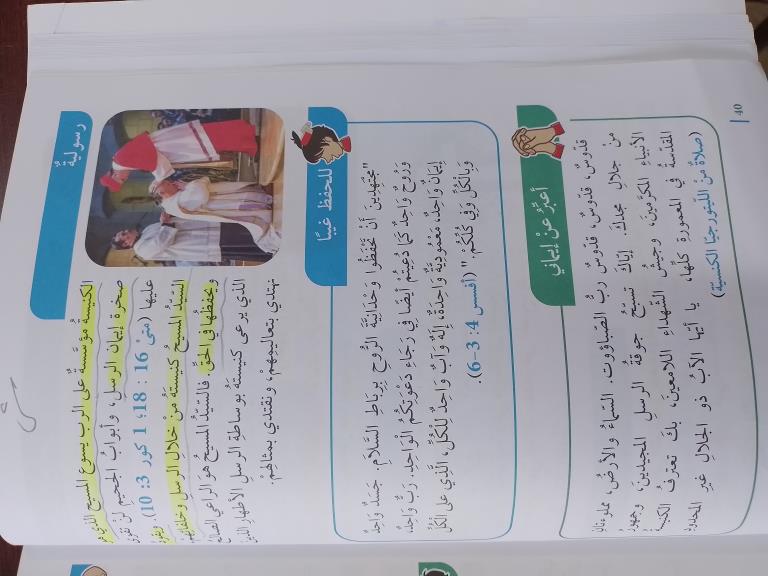 رسولية
الكنيسةُ مؤسَّسةٌ على الرب يسوع المسيح الذي هو
صخرة إيمان الرسل، وأبوابُ الجحيم لن تقوى
عليها (متى 16 : 18؛ 1 كور 3: 10). ويقودُ
السيّدُ المسيح كنيستَهُ من خلال الرسلِ وخلفائِهم
ويحفظُها في الحقّ. فالسيّدُ المسيحُ هو الراعي الصالحُ
الذي يرعى كنيستَهُ بوساطةِ الرسل الأطهارِ الذين
نهتدي بتعاليمِهِمْ، ونقتدي بمثلِهِمْ.
للحفظ غيبًا
"مجتهِدينَ أنْ تحفَظُوا وَحْدانيَّةَ الرُّوحِ بِرِباطِ السَّلامِ. جَسَدٌ واحِدٌ
وَرُوحٌ واحِدٌ كَمَا دُعِيتُم أيضًا في رَجَاءِ دَعْوَتِكُمُ الواحِدِ. رَبٌّ واحِدٌ،
إيمَانٌ واحِدٌ، مَعْمُودِيَّةٌ واحِدَةٌ، إلَهٌ وَآبٌ واحِدٌ لِلْكُلِّ، الَّذِي عَلَى الْكُلِّ
وَبِالْكُلِّ وَفِي كُلِّكُمْ" (أفسس 4: 3-6).
أعبّرُ عنْ إيماني
قدّوسٌ، قدّوسٌ، قدّوسٌ ربُّ الصّباؤوت. السّماءُ والأرضُ، مملوءتانِ
من جلالِ مجدكَ. إيّاكَ تسبّحُ جوقةُ الرسلِ المجيدينَ، وجمهورُ
الأنبياءِ المكرّمينَ، وجيشُ الشّهداءِ اللامعينَ، بكَ تعترفُ الكنيسةُ
المقدّسةُ في المعمورةِ كلِّها، يا أيّها الآبُ ذو الجلالِ غيرِ المحدودِ
(صلاة من الليتورجيّا الكنسيّة)
40